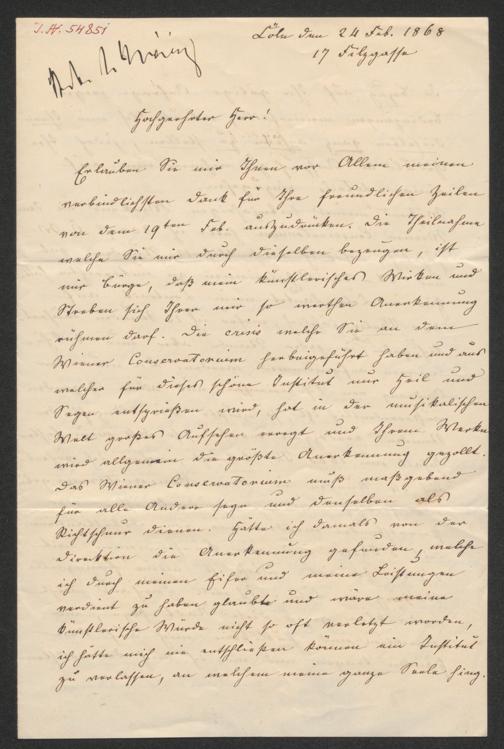 I.N. 54851
Cöln den 24 Feb. 1868
17 Filzgasse
Hochgeehrter Herr!
Erlauben Sie mir Ihnen vor Allem meinen
verbindlichsten Dank für Ihre freundlichen Zeilen
von dem 19ten Feb. auszudrücken. Die Theilnahme
welche Sie mir durch dieselben bezeugen, ist
mir Bürge, daß mein künstlerisches Wirken und
Streben sich Ihrer mir so werthen Anerkennung
rühmen darf. Die crisis welche Sie an dem
Wiener Conservatorium herbeigeführt haben und aus
welcher für dieses schöne Institut nur Heil und
Segen entsprießen wird, hat in der musikalischen
Welt großes Aufsehen erregt und Ihrem Werke
wird allgemein die größte Anerkennung gezollt.
Das Wiener Conservatorium muß maßgebend
für alle Andere seyn und denselben als
Richtschnur dienen. Hätte ich damals von der
Direktion die Anerkennung gefunden, welche
ich durch meinen Eifer und meine Leistungen
verdient zu haben glaubte und wäre meine
künstlerische Würde nicht so oft verletzt worden,
ich hätte mich nie entschließen können ein Institut
zu verlassen, an welchem meine ganze Seele hing.